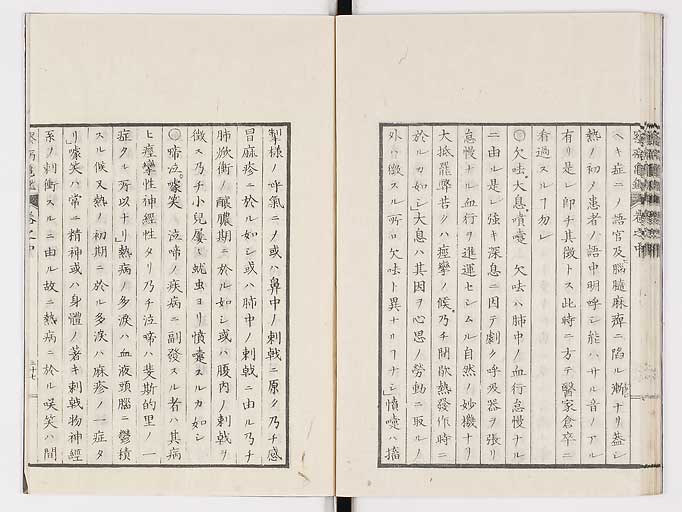 ヘキ症ニノ語官及脳髄麻痺ニ陥ル漸ナリ蓋シ
熱ノ初メ患者ノ語中明呼シ能ハサル音ノアル
有リ是レ即チ其徴トス此時ニ方テ醫家倉卒ニ
看過スル勿レ
欠呿大息噴嚏 欠呿ハ肺中ノ血行怠慢ナル
ニ由ル是レ強キ深息ニ因テ劇ク呼吸器ヲ張リ
怠慢ナル血行ヲ進運セシムル自然ノ妙機ナリ
大抵罷弊苦シクハ痙攣ノ候乃チ間歇熱發作時ニ
於ルカ如シ大息ハ其因ヲ心思ノ勞動ニ取ルノ
外ハ徴スル所ロ欠呿ト異ナリナシ噴嚏ハ搐
掣様ノ呼氣ニノ或ハ鼻中ノ刺戟ニ原ク乃チ感
冒麻疹ニ於ル如シ或ハ肺中ノ刺戟ニ由ル乃チ
肺焮衝ノ醸膿期ニ於ル如シ或ハ腹内ノ刺戟ヲ
徴ス乃チ小兒屢〻蚘虫ヨリ噴嚏スルカ如シ
啼泣嚎笑 泣啼ノ疾病ニ副發スル者ハ其病
ヒ痙攣性神經性タリ乃チ泣啼ハ斐斯的里ノ一
症タル所以ナリ熱病ノ多涙ハ血液頭腦ニ鬱積
スル候又熱ノ初期ニ於ル多涙ハ麻疹ノ一症タ
リ嚎笑ハ常ニ精神或ハ身體ノ著キ刺戟物神經
系ノ刺衝スルニ由ル故ニ熱病ニ於ル咲笑ハ間
卷之中
三十七